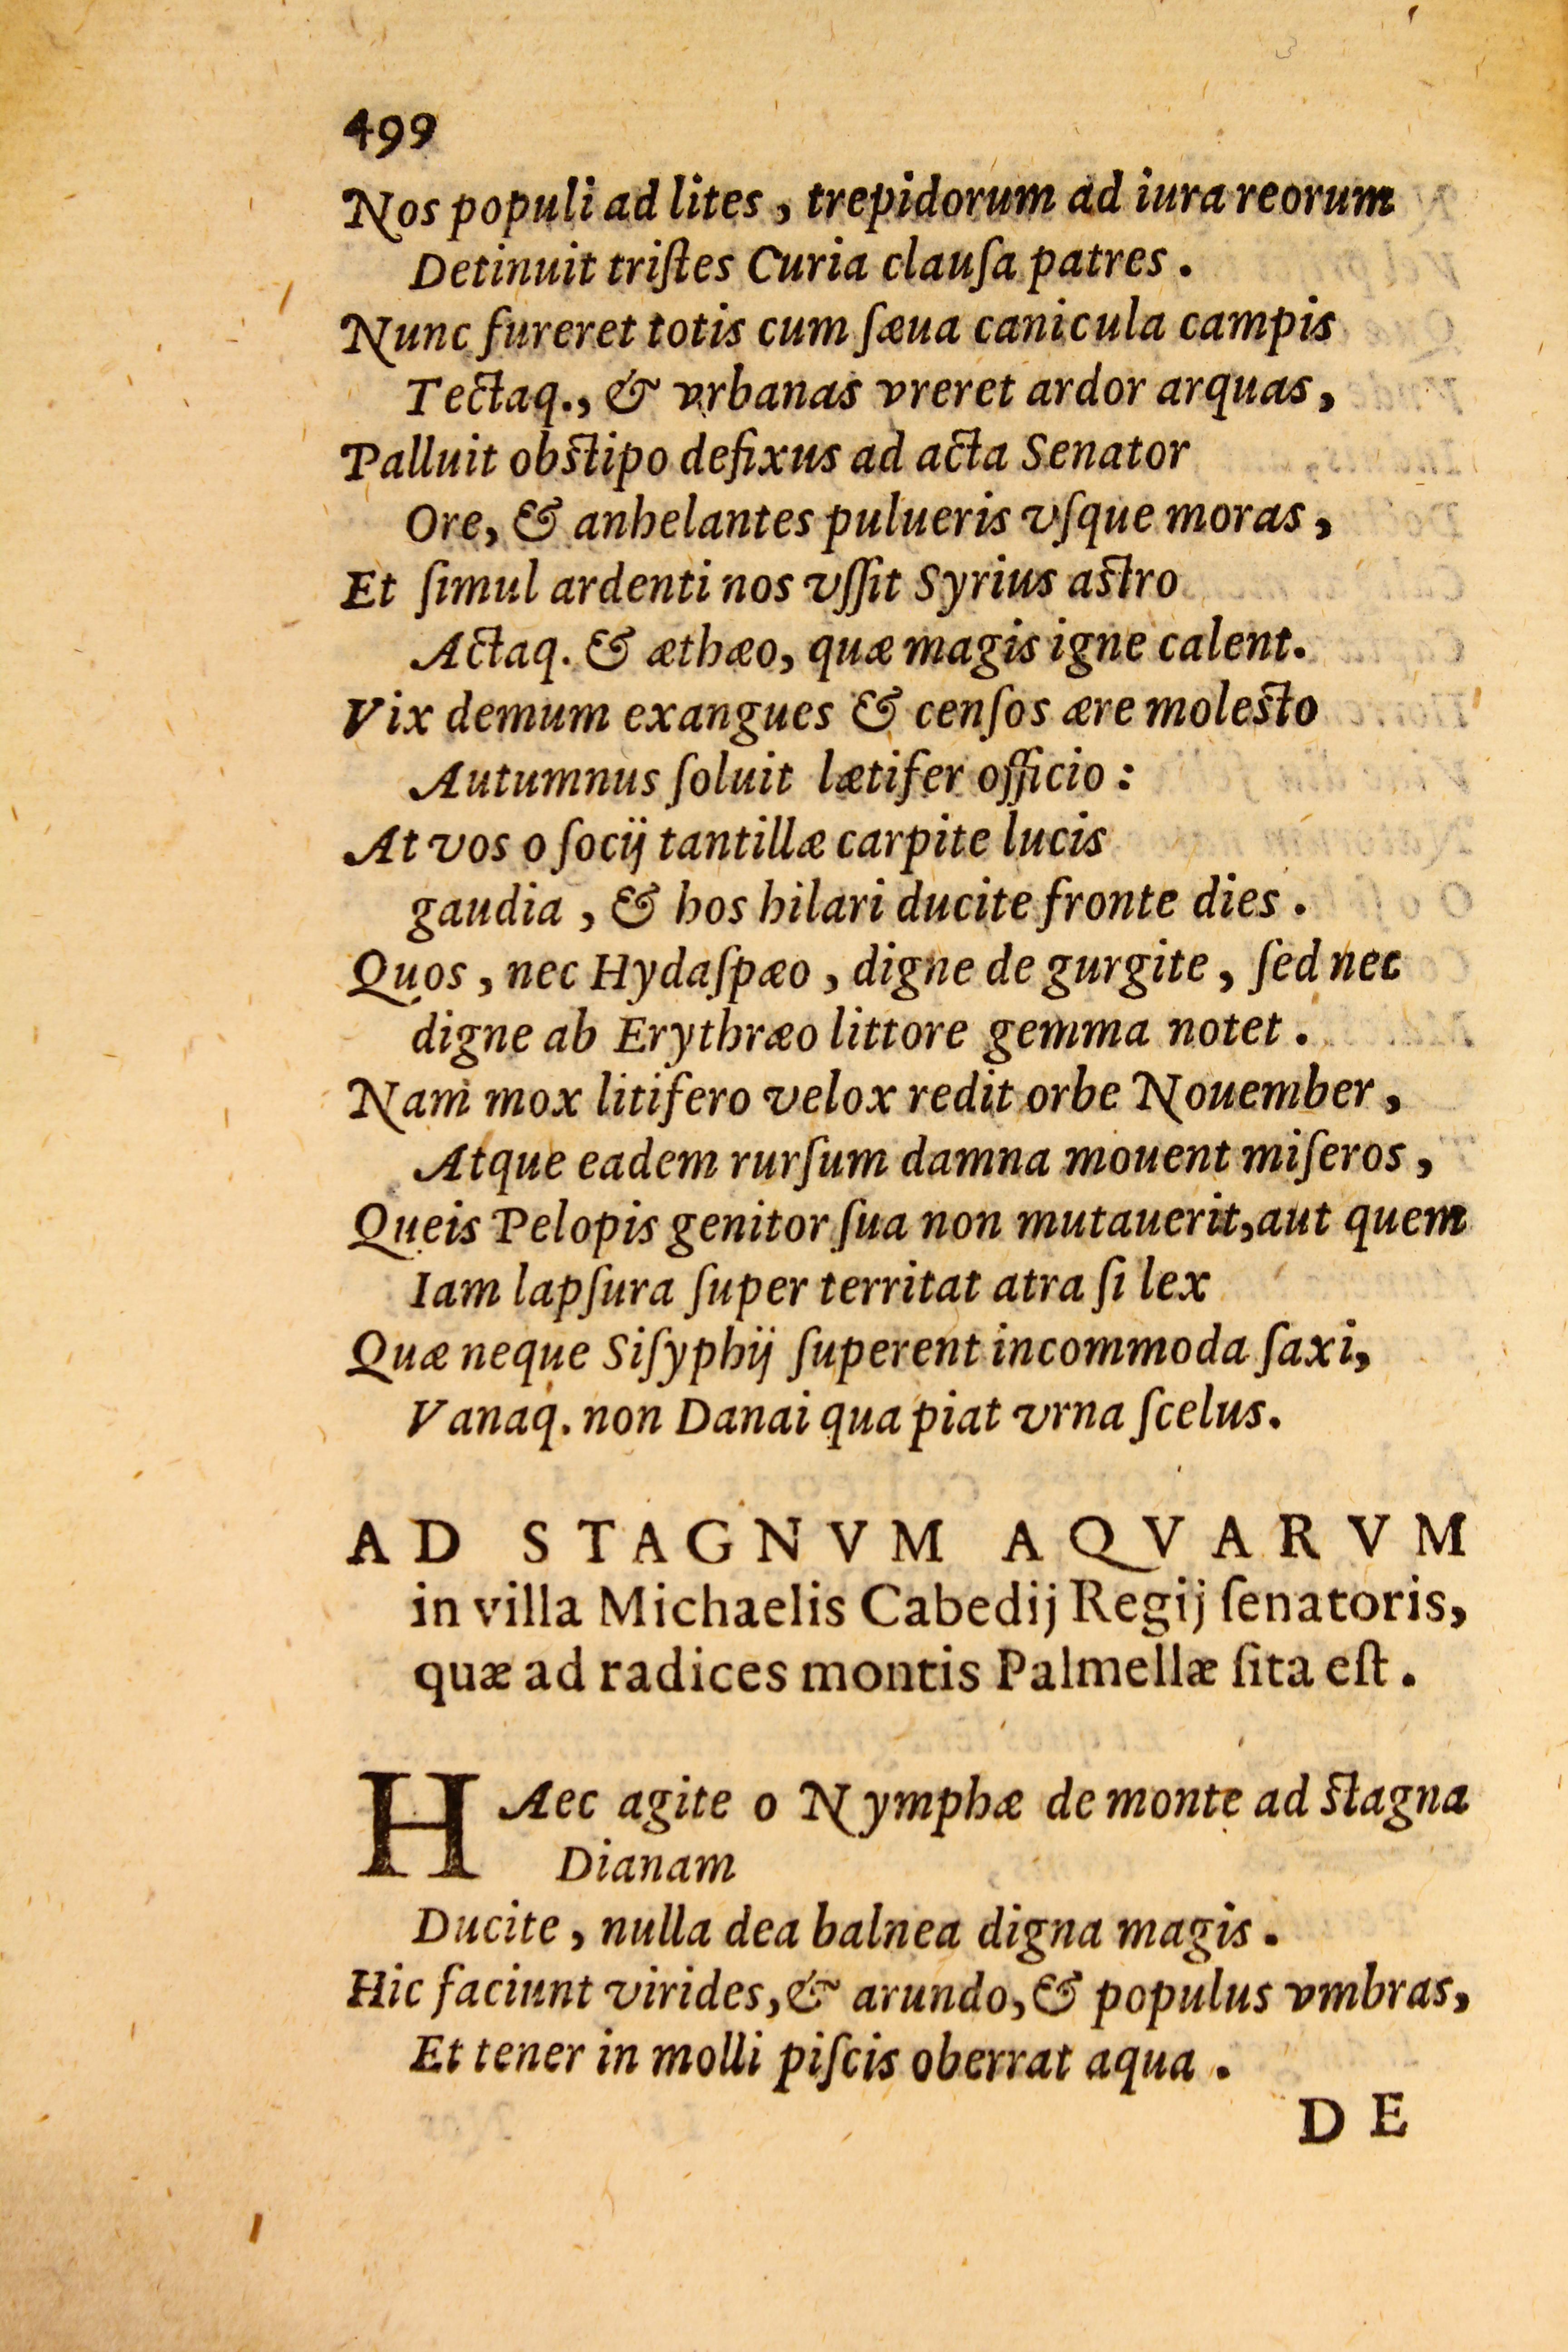 499
Nos populi ad lites, trepidorum ad iura reorum
Detinuit triſtes Curia clauſa patres.
Nunc fureret totis cum ſæua canicula campis
Tectaq., & vrbanas vreret ardor arquas,
Palluit obſtipo defixus ad acta Senator
Ore, & anhelantes pulueris vſque moras,
Et ſimul ardenti nos vſſit Syrius aſtro
Actaq. & æthæo, quæ magis igne calent.
Vix demum exangues & cenſos ære moleſto
Autumnus ſoluit lætifer officio:
At vos o ſocij tantillæ carpite lucis
gaudia, & hos hilari ducite fronte dies.
Quos, nec Hydaſpæo, digne de gurgite, ſed nec
digne ab Erythræo littore gemma notet.
Nam mox litifero velox redit orbe Nouember,
Atque eadem rurſum damna mouent miſeros,
Queis Pelopis genitor ſua non mutauerit, aut quem
Iam lapſura ſuper territat atra ſi lex
Quæ neque Siſyphij ſuperent incommoda ſaxi,
Vanaq. non Danai qua piat vrna ſcelus.
AD STAGNVM AQVARVM
in villa Michaelis Cabedij Regij ſenatoris,
quæ ad radices montis Palmellæ ſita eſt.
HAec agite o Nymphæ de monte ad ſtagna
Dianam
Ducite, nulla dea balnea digna magis.
Hic faciunt virides, & arundo, & populus vmbras,
Et tener in molli piſcis oberrat aqua.
DE